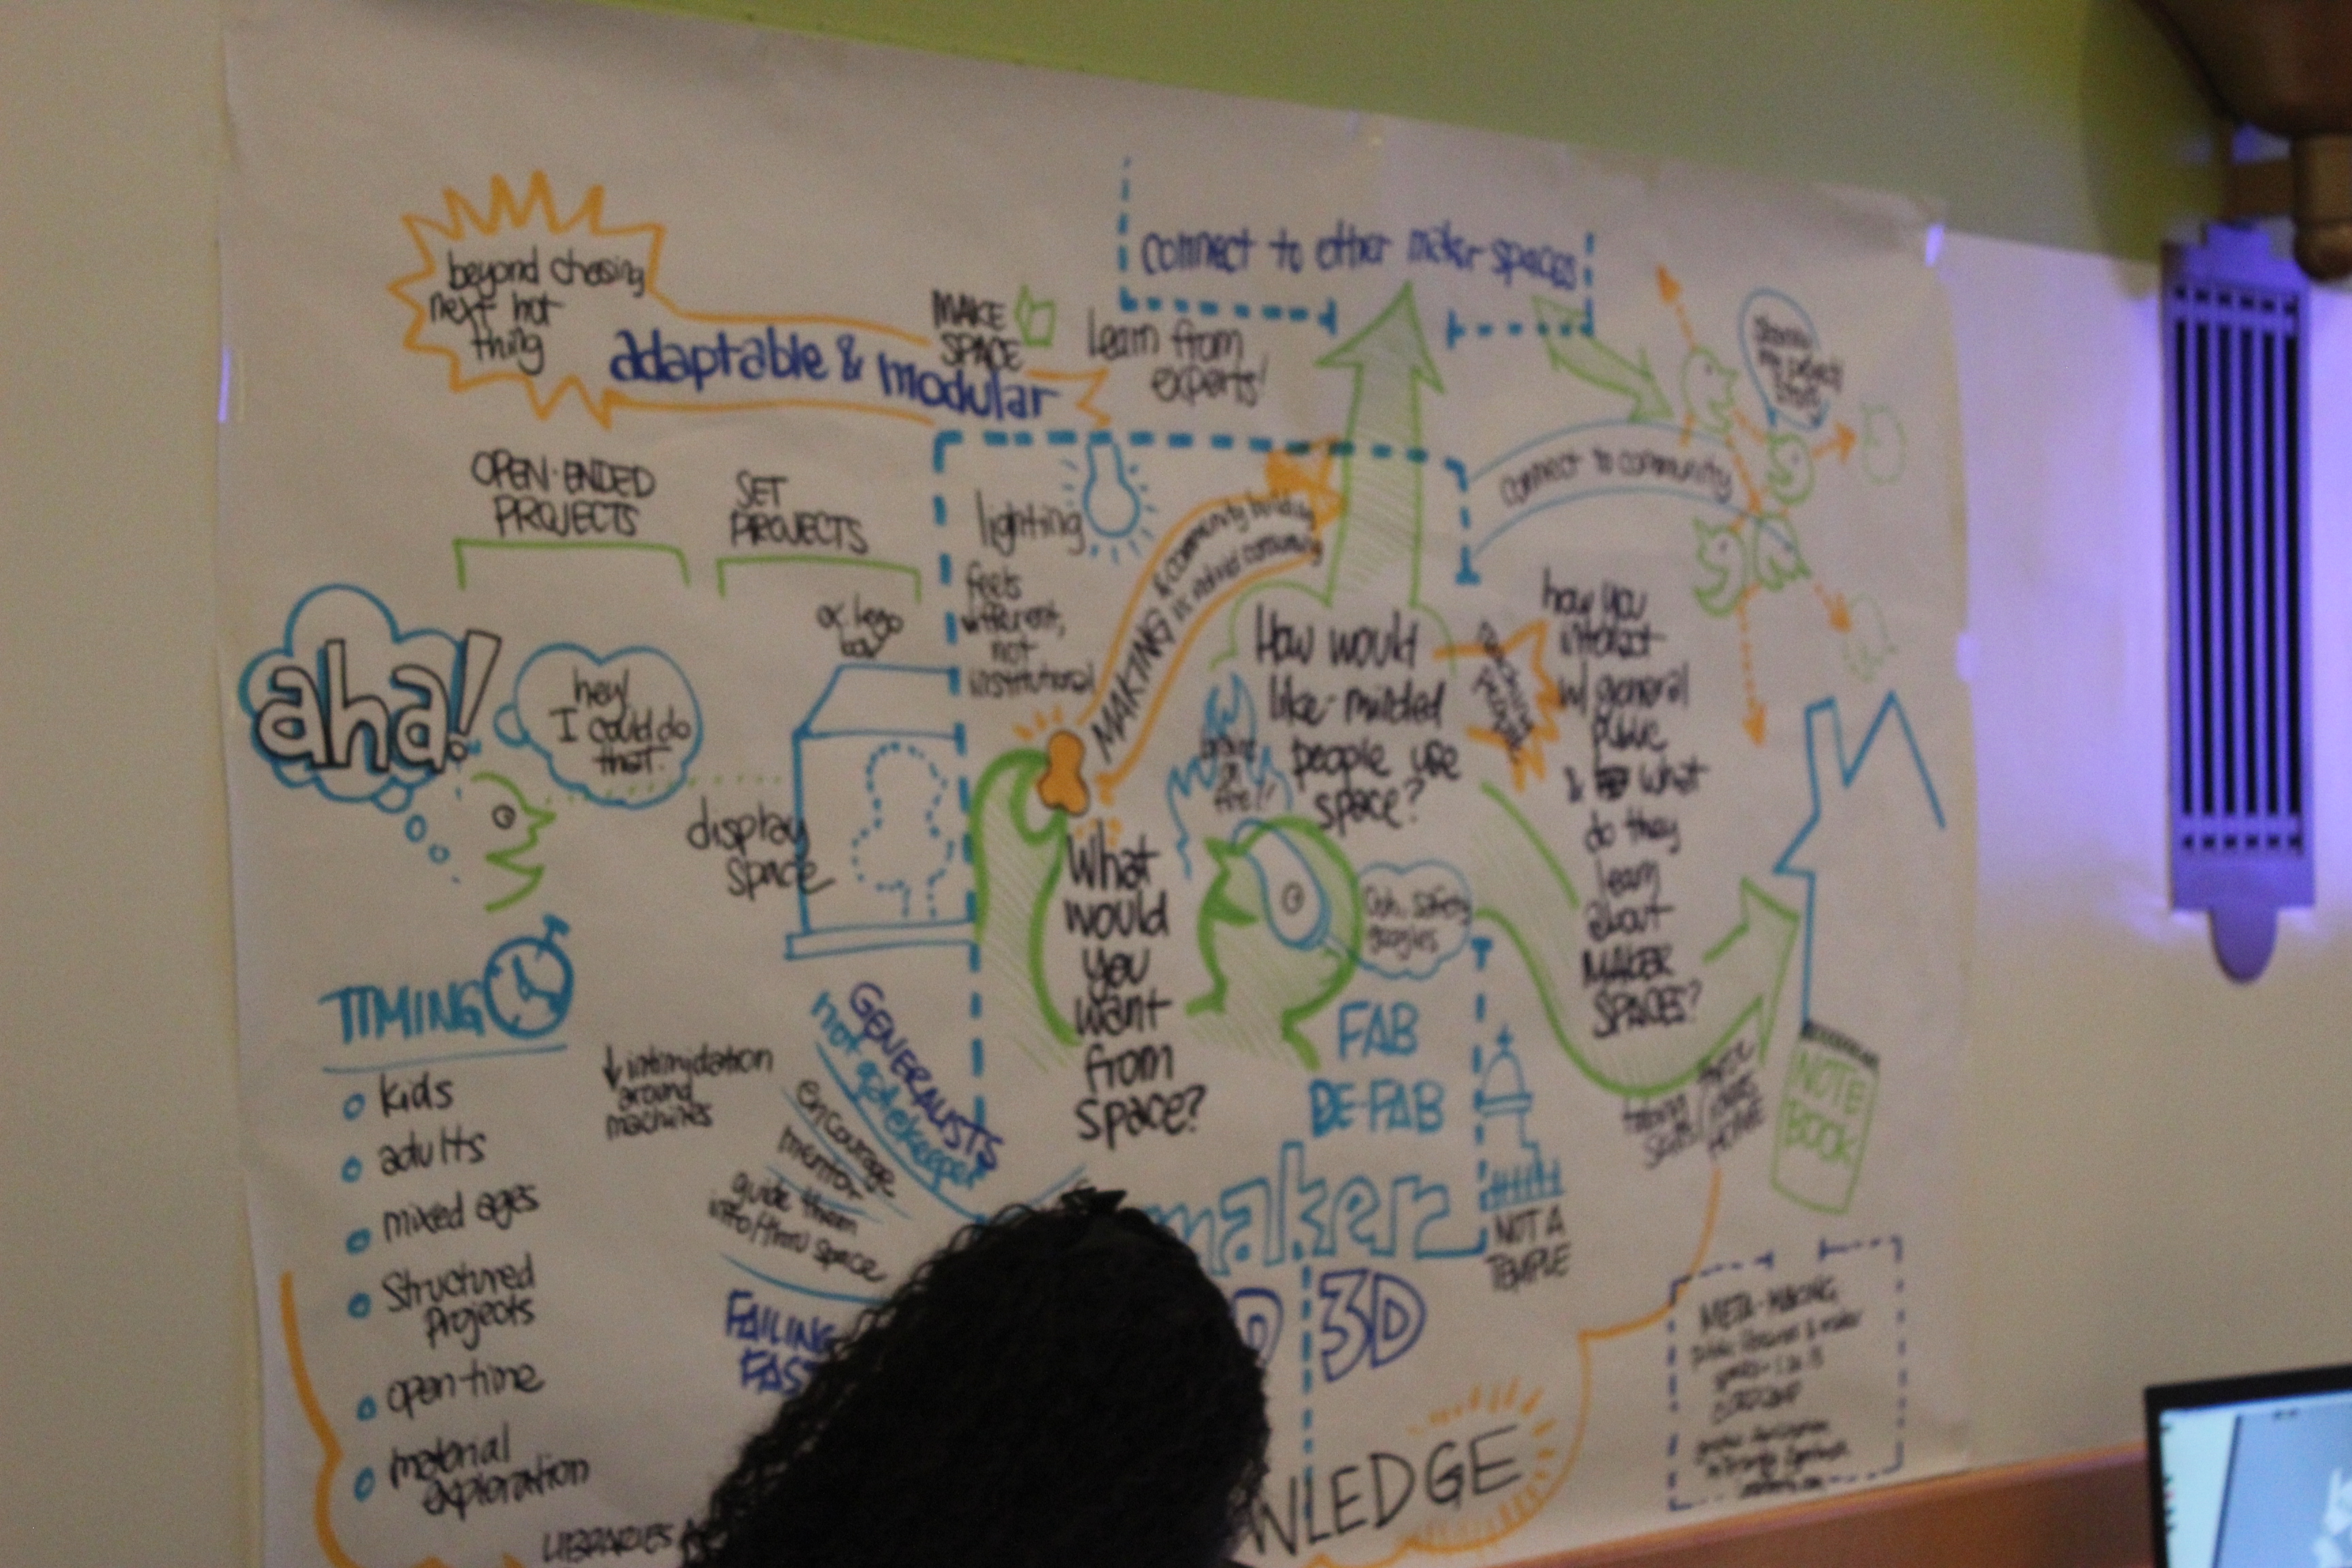 beyond chasing
next hot
thing
adaptable & modular
MAKE
SPACE
Learn from
experts!
connect to other maker spaces
connect to community
OPEN-ENDED
PROJECTS
SET
PROJECTS
or lego
lighting
feels
different,
not
institutional
MAKING & community building
aha!
hey!
I could do
that.
display
space
How would
like-minded
people use
space?
how you
interact
w/ general
public
& what
do they
learn
about
MAKER
SPACES?
What
would
you
want
from
space?
Ooh, safety
goggles
FAB
DE-FAB
maker
3D
NOT A
TEMPLE
NOTE
BOOK
TIMING
kids
adults
mixed ages
Structured
Projects
open-time
material
exploration
↓ intimidation
around
machines
GENERALISTS
not gatekeeper
encourage
mentor
guide them
into/thru space
FAILING
FAST
LIBRARIES
WLEDGE
META-MAKING